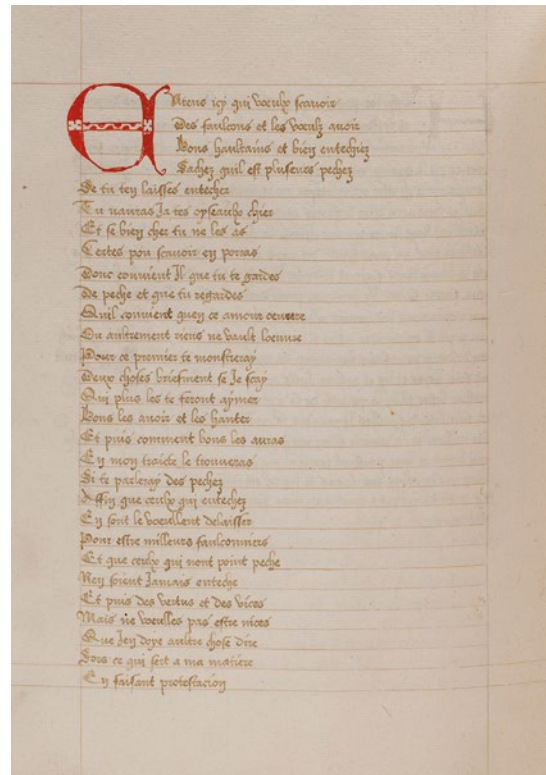 Entens icy qui voeulx scavoir
Des faulcons et les voeulz avoir
Bons haultains et bien entechiez
Sachez quil est pluseurs pechez
De tu ten laisses entecher
Tu nauras Ja tes oyseaulx chier
Et se bien cher tu ne les as
Certes pou scavoir en porras
Donc convient Il que tu te gardes
De peche et que tu regardes
Quil convient quen ce amour oeuvre
Ou aultrement riens ne vault loeuvre
Pour ce premier te monstreray
Deux choses briefment se Je scay
Qui plus les te feront aymer
Bons les avoir et les hanter
Et puis comment bons les auras
En mon traicte le trouveras
Si te parleray des pechez
Affin que ceulx qui entechez
En sont le voeullent delaisser
Pour estre milleurs faulconniers
Et que ceulx qui nont point peche
Nen soient Jamais enteche
Et puis des vertus et des vices
Mais ne voeulles pas estre nices
Que Jen doye aultre chose dire
Fors ce qui sert a ma matiere
En faisant protestacion